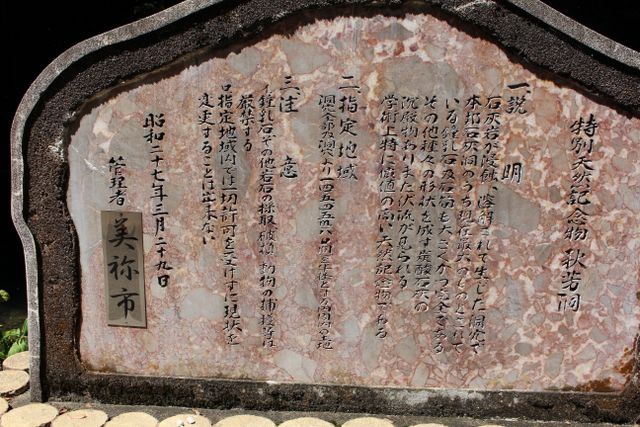 特別天然記念物 秋芳洞
一、説明
石灰岩が浸蝕、溶解されて生じた洞穴で
本邦石灰洞のうち現在最大のものとされて
いる鍾乳石及石筍も大きくかつ完全である
その他種々の形状を成す炭酸石灰の
沈殿物ありまた伏流が見られる
学術上特に価値の高い天然記念物である
二、指定地域
洞窟全部及洞入口
三、注意
イ、鍾乳石その他岩石の採取破損、動物の捕獲等は
厳禁する
ロ、指定地域内では一切許可を受けずに現状を
変更することは出来ない
昭和二十七年三月二十九日
管理者 美祢市